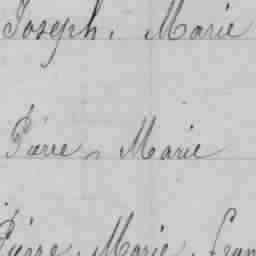 Joseph, Marie
Pierre, Marie
Pierre, Marie, Fran